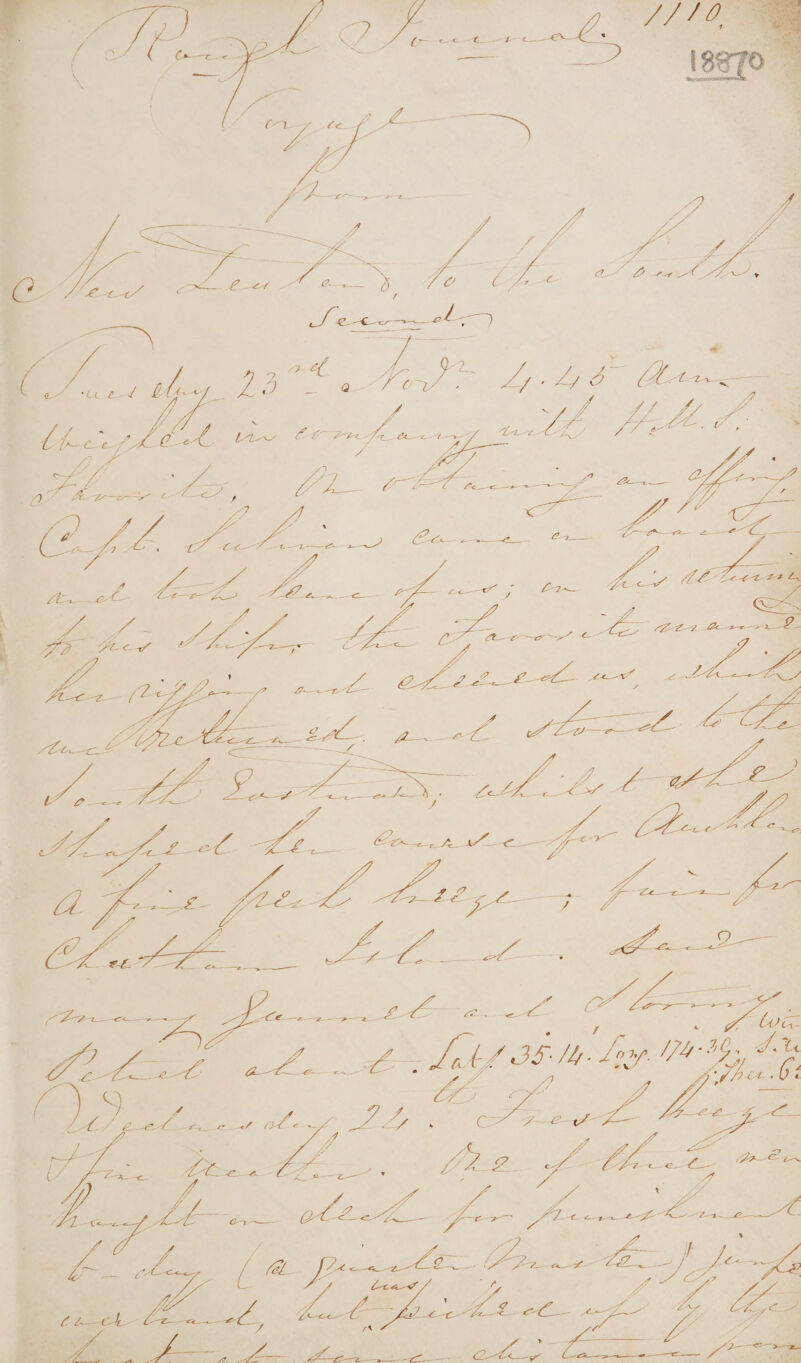 1110.
Rough Journal.
18870
Voyage
from
New Zealand, to the South.
Second.
Tuesday 23rd Novr. 4.45 Am
Weighed in company with H.M.S.
Favorite. On obtaining an offing,
Capt. Sulivan came on board
and took leave of us; on his returning
to his Ship, the Favorite manned
her rigging and cheered us, which
we returned, and stood to the
South Eastward; whilst she
shaped her course for Auckland
A fine fresh breeze; fair for
Chatham Island. Saw
many Gannet and Stormy
Petrel about. Lat. 35.14. Long. 174.30.
Ther. 6
Wednesday 24th. Fresh breeze
& fine Weather. One of three men
brought on deck for punishment
to-day (a Quarter Master) jumped
overboard, but was picked up by the
boat at some distance from